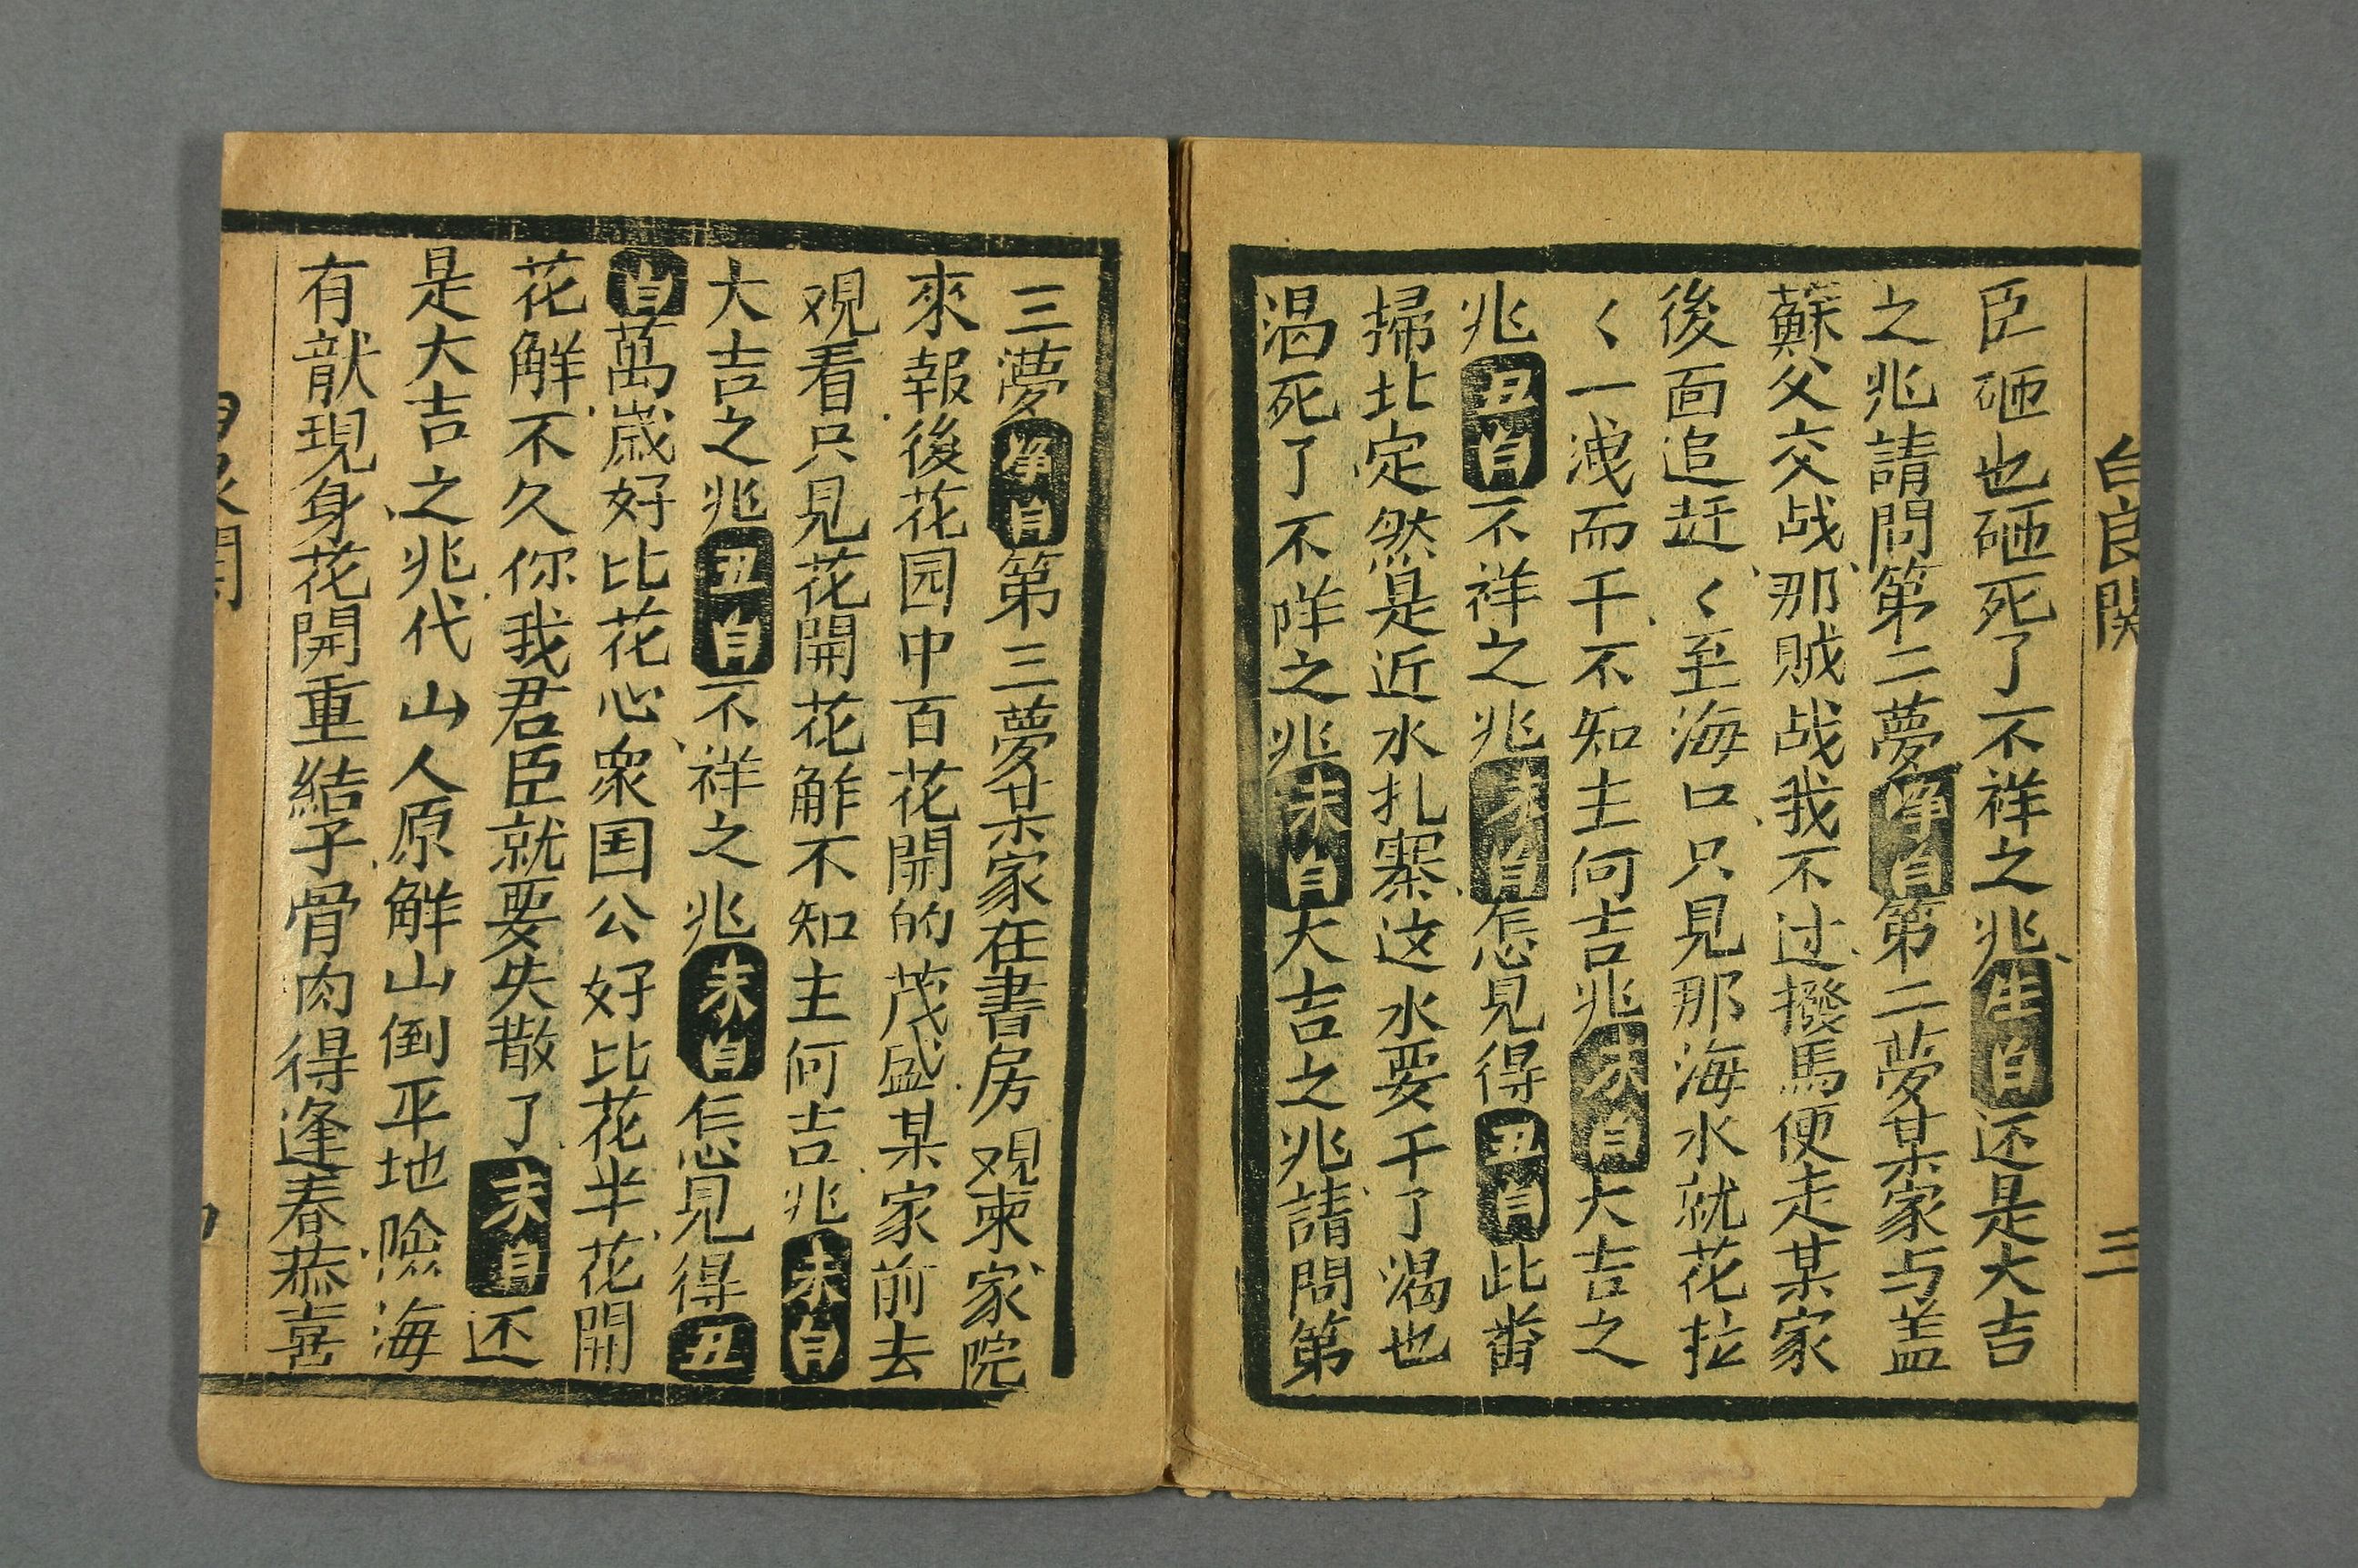 白良関
三
臣砸也砸死了不祥之兆生白还是大吉
之兆請問第二夢净白第二夢某家与盖
蘇父交战那贼战我不过撥馬便走某家
後面追赶〱至海口只見那海水就花拉
〱一洩而干不知主何吉兆末白大吉之
兆丑白不祥之兆末白怎見得丑白此番
掃北定然是近水扎寨这水要干了渴也
渴死了不咩之兆末白大吉之兆請問第
三夢净白第三夢某家在書房观柬家院
來報後花园中百花開的茂盛某家前去
观看只見花開花觧不知主何吉兆末白
大吉之兆丑白不祥之兆末白怎見得丑
白萬歳好比花心衆国公好比花半花開
花觧不久你我君臣就要失散了末白还
是大吉之兆代山人原觧山倒平地險海
有献現身花開重結子骨肉得逢春恭喜